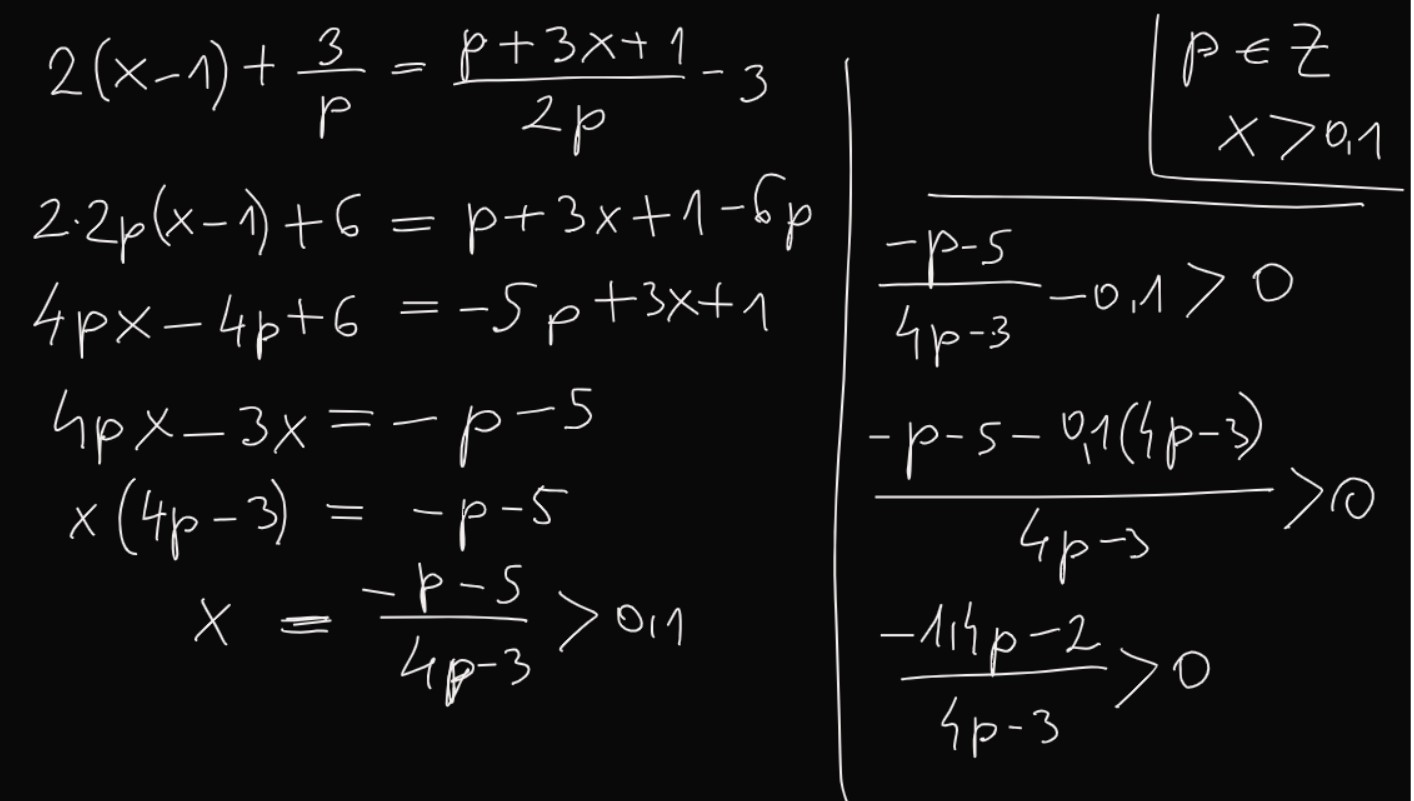 2(x-1) + 3/p = (p+3x+1)/(2p) - 3
2·2p(x-1)+6 = p+3x+1-6p
4px-4p+6 = -5p+3x+1
4px-3x = -p-5
x(4p-3) = -p-5
x = (-p-5)/(4p-3) > 0,1
p ∈ Z
x > 0,1
(-p-5)/(4p-3) - 0,1 > 0
(-p-5-0,1(4p-3))/(4p-3) > 0
(-1,4p-2)/(4p-3) > 0